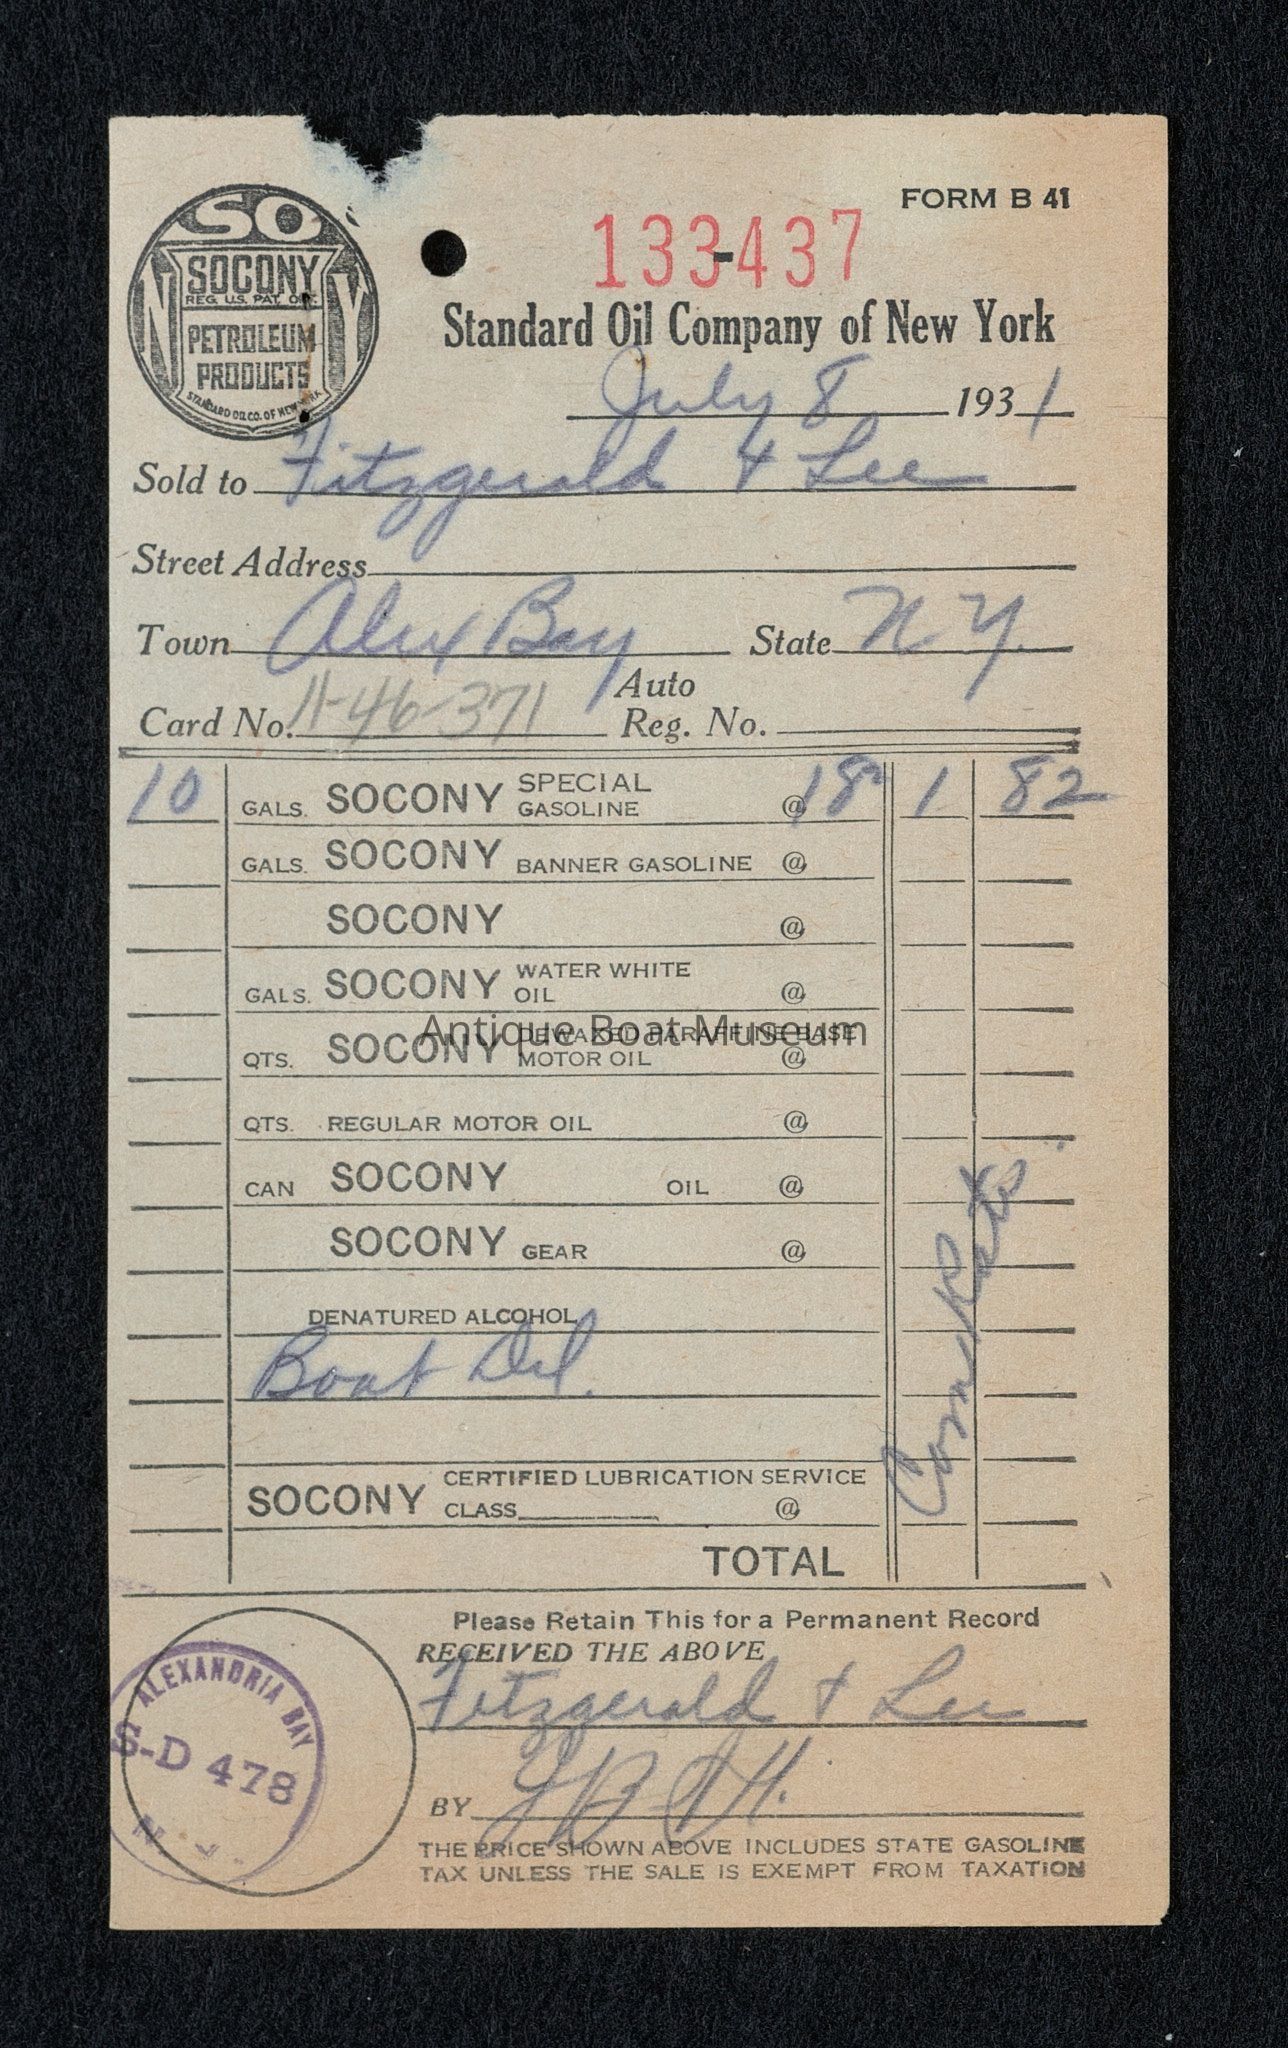 FORM B 41
133-437
SO
NY
SOCONY
REG. U.S. PAT. OFF.
PETROLEUM
PRODUCTS
STANDARD OIL CO. OF NEW YORK
Standard Oil Company of New York
July 8 1931
Sold to Fitzgerald & Lee
Street Address
Town Alex Bay State N.Y.
Card No. 11-46-371 Auto Reg. No.
10 GALS. SOCONY SPECIAL GASOLINE @ 18² 1 82
GALS. SOCONY BANNER GASOLINE @
SOCONY @
GALS. SOCONY WATER WHITE OIL @
QTS. SOCONY DEWAXED PARAFFINE BASE MOTOR OIL @
Antique Boat Museum
QTS. REGULAR MOTOR OIL @
CAN SOCONY OIL @
SOCONY GEAR @
DENATURED ALCOHOL
Boat Del.
SOCONY CERTIFIED LUBRICATION SERVICE
CLASS @
TOTAL
Please Retain This for a Permanent Record
RECEIVED THE ABOVE
Fitzgerald & Lee
BY
THE PRICE SHOWN ABOVE INCLUDES STATE GASOLINE
TAX UNLESS THE SALE IS EXEMPT FROM TAXATION
ALEXANDRIA BAY
S-D 478